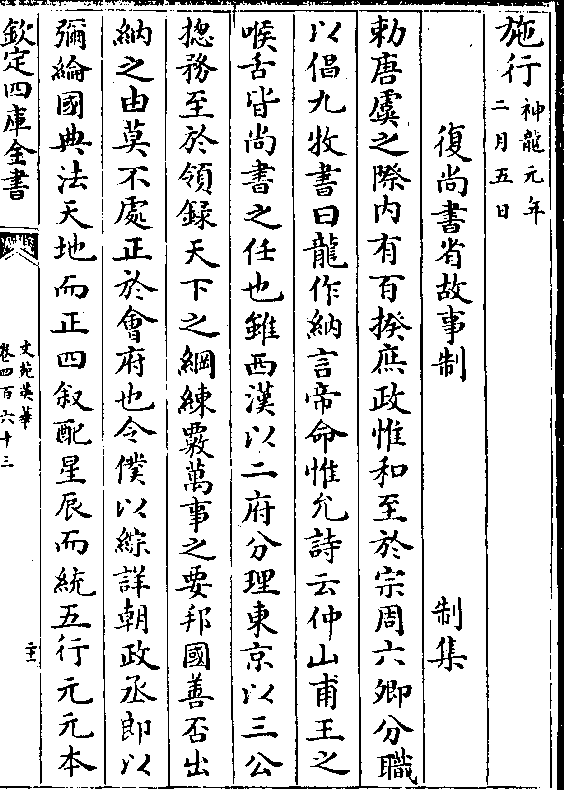 施行神龍元年二月五日
復尚書省故事制　制集
勅唐虞之際内有百揆庶政惟和至於宗周六卿分職
以倡九牧書曰龍作納言帝命惟允詩云仲山甫王之
喉舌皆尚書之任也雖西漢以二府分理東京以三公
揔務至於領録天下之綱練覈萬事之要邦國善否出
納之由莫不處正於會府也令僕以綜詳朝政丞郎以
彌綸國典法天地而正四叙配星辰而統五行元元本
欽定四庫全書
文苑英華
卷四百六十三
二十一